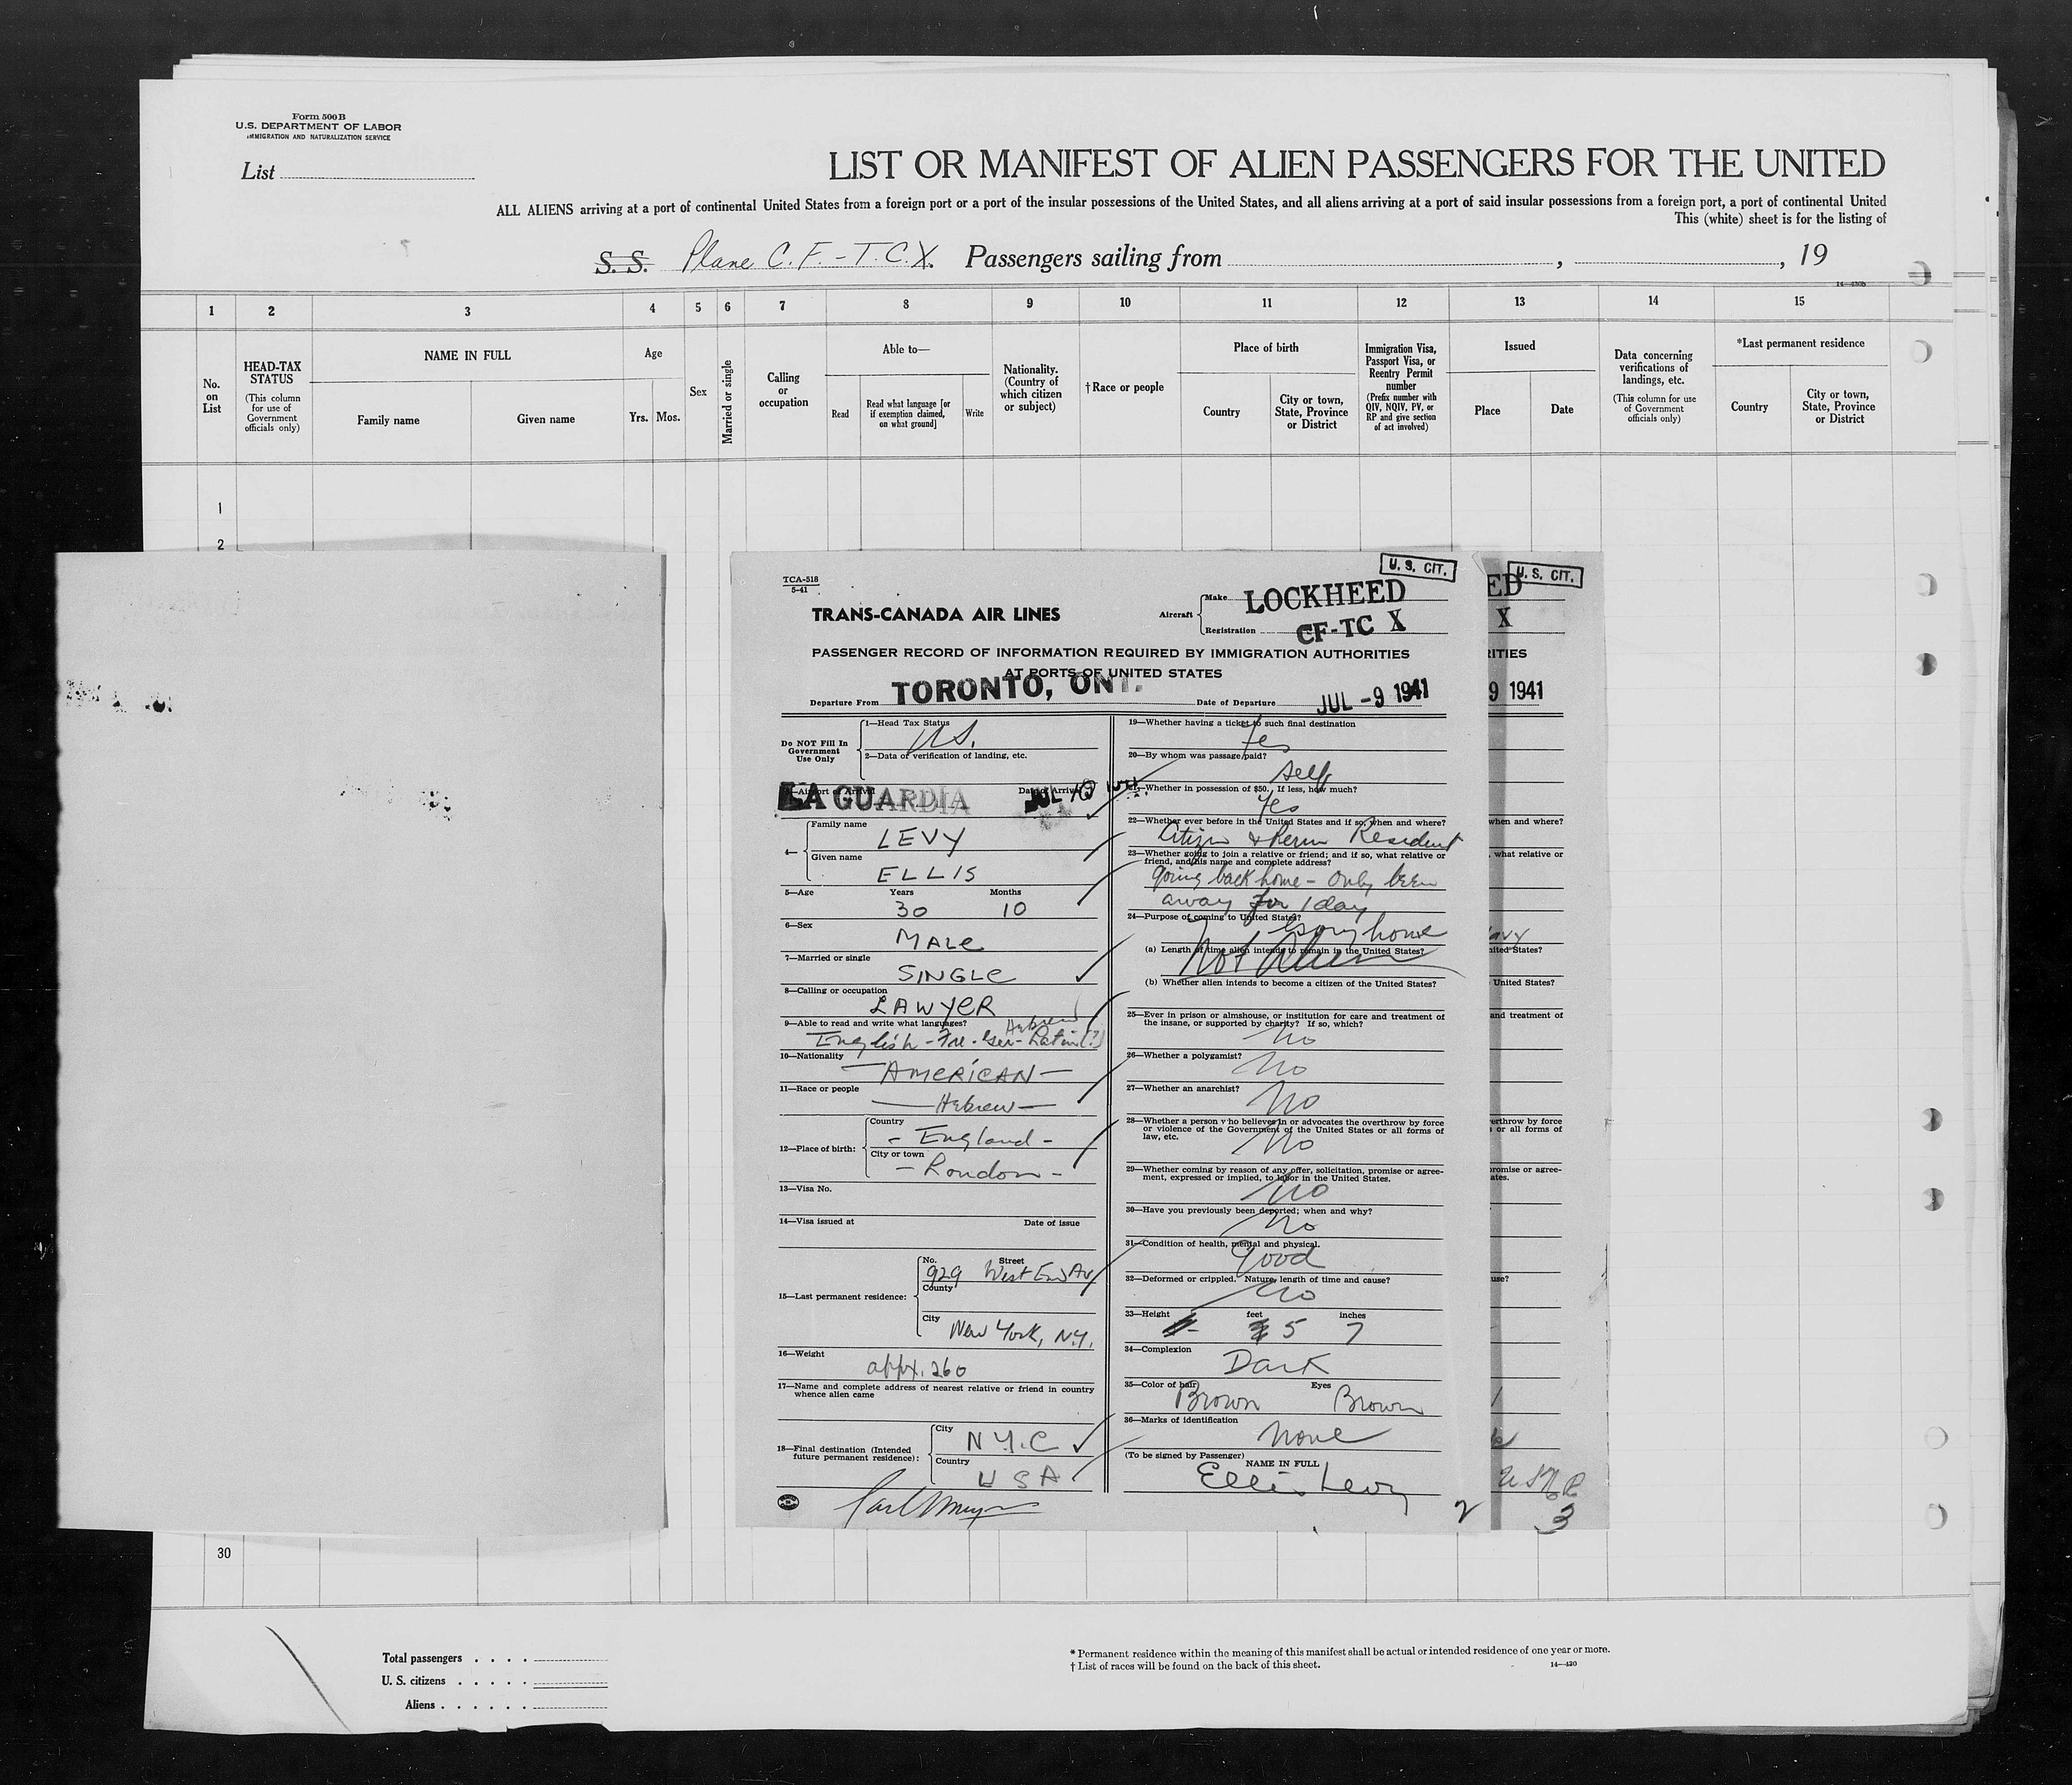 Form 500B
U.S. DEPARTMENT OF LABOR
IMMIGRATION AND NATURALIZATION SERVICE
List
LIST OR MANIFEST OF ALIEN PASSENGERS FOR THE UNITED
ALL ALIENS arriving at a port of continental United States from a foreign port or a port of the insular possessions of the United States, and all aliens arriving at a port of said insular possessions from a foreign port, a port of continental United
This (white) sheet is for the listing of
S. S. Plane C.F.-T.C.X. Passengers sailing from , , 19
1 2 3 4 5 6 7 8 9 10 11 12 13 14 15
No. on List
HEAD-TAX STATUS
(This column for use of Government officials only)
NAME IN FULL
Family name
Given name
Age
Yrs. Mos.
Sex
Married or single
Calling or occupation
Able to—
Read
Read what language [or if exemption claimed, on what ground]
Write
Nationality. (Country of which citizen or subject)
†Race or people
Place of birth
Country
City or town, State, Province or District
Immigration Visa, Passport Visa, or Reentry Permit number
(Prefix number with QIV, NQIV, PV, or RP and give section of act involved)
Issued
Place
Date
Data concerning verifications of landings, etc.
(This column for use of Government officials only)
*Last permanent residence
Country
City or town, State, Province or District
1
2
U. S. CIT.
U. S. CIT.
TCA-518
5-41
TRANS-CANADA AIR LINES
Aircraft
Make LOCKHEED
Registration CF-TC X
ED
X
PASSENGER RECORD OF INFORMATION REQUIRED BY IMMIGRATION AUTHORITIES
AT PORTS OF UNITED STATES
Departure From TORONTO, ONT.
Date of Departure JUL -9 1941
9 1941
Do NOT Fill In Government Use Only
1—Head Tax Status
U.S.
2—Data of verification of landing, etc.
LA GUARDIA
4—
Family name
LEVY
Given name
ELLIS
5—Age Years Months
30 10
6—Sex
MALE
7—Married or single
SINGLE
8—Calling or occupation
LAWYER
9—Able to read and write what languages?
Hebrew
English - Fre - Ger - Latin (?)
10—Nationality
— AMERICAN —
11—Race or people
— Hebrew —
12—Place of birth:
Country
- England -
City or town
- London -
13—Visa No.
14—Visa issued at Date of issue
15—Last permanent residence:
No. Street
929 West End Av
County
City
New York, N.Y.
16—Weight
appx. 260
17—Name and complete address of nearest relative or friend in country whence alien came
18—Final destination (Intended future permanent residence):
City
N.Y.C
Country
U S A
19—Whether having a ticket to such final destination
Yes
20—By whom was passage paid?
self
21—Whether in possession of $50. If less, how much?
Yes
22—Whether ever before in the United States and if so, when and where?
Citizen & Perm Resident
23—Whether going to join a relative or friend; and if so, what relative or friend, and his name and complete address?
going back home - only been
away for 1 day
24—Purpose of coming to United States?
Going home
(a) Length of time alien intends to remain in the United States?
Not Alien
(b) Whether alien intends to become a citizen of the United States?
25—Ever in prison or almshouse, or institution for care and treatment of the insane, or supported by charity? If so, which?
No
26—Whether a polygamist?
No
27—Whether an anarchist?
No
28—Whether a person who believes in or advocates the overthrow by force or violence of the Government of the United States or all forms of law, etc.
No
29—Whether coming by reason of any offer, solicitation, promise or agreement, expressed or implied, to labor in the United States.
No
30—Have you previously been deported; when and why?
No
31—Condition of health, mental and physical.
Good
32—Deformed or crippled. Nature, length of time and cause?
No
33—Height feet inches
5 7
34—Complexion
Dark
35—Color of hair Eyes
Brown Brown
36—Marks of identification
None
(To be signed by Passenger)
NAME IN FULL
Ellis Levy
2
3
30
Total passengers
U. S. citizens
Aliens
* Permanent residence within the meaning of this manifest shall be actual or intended residence of one year or more.
† List of races will be found on the back of this sheet.
14—430